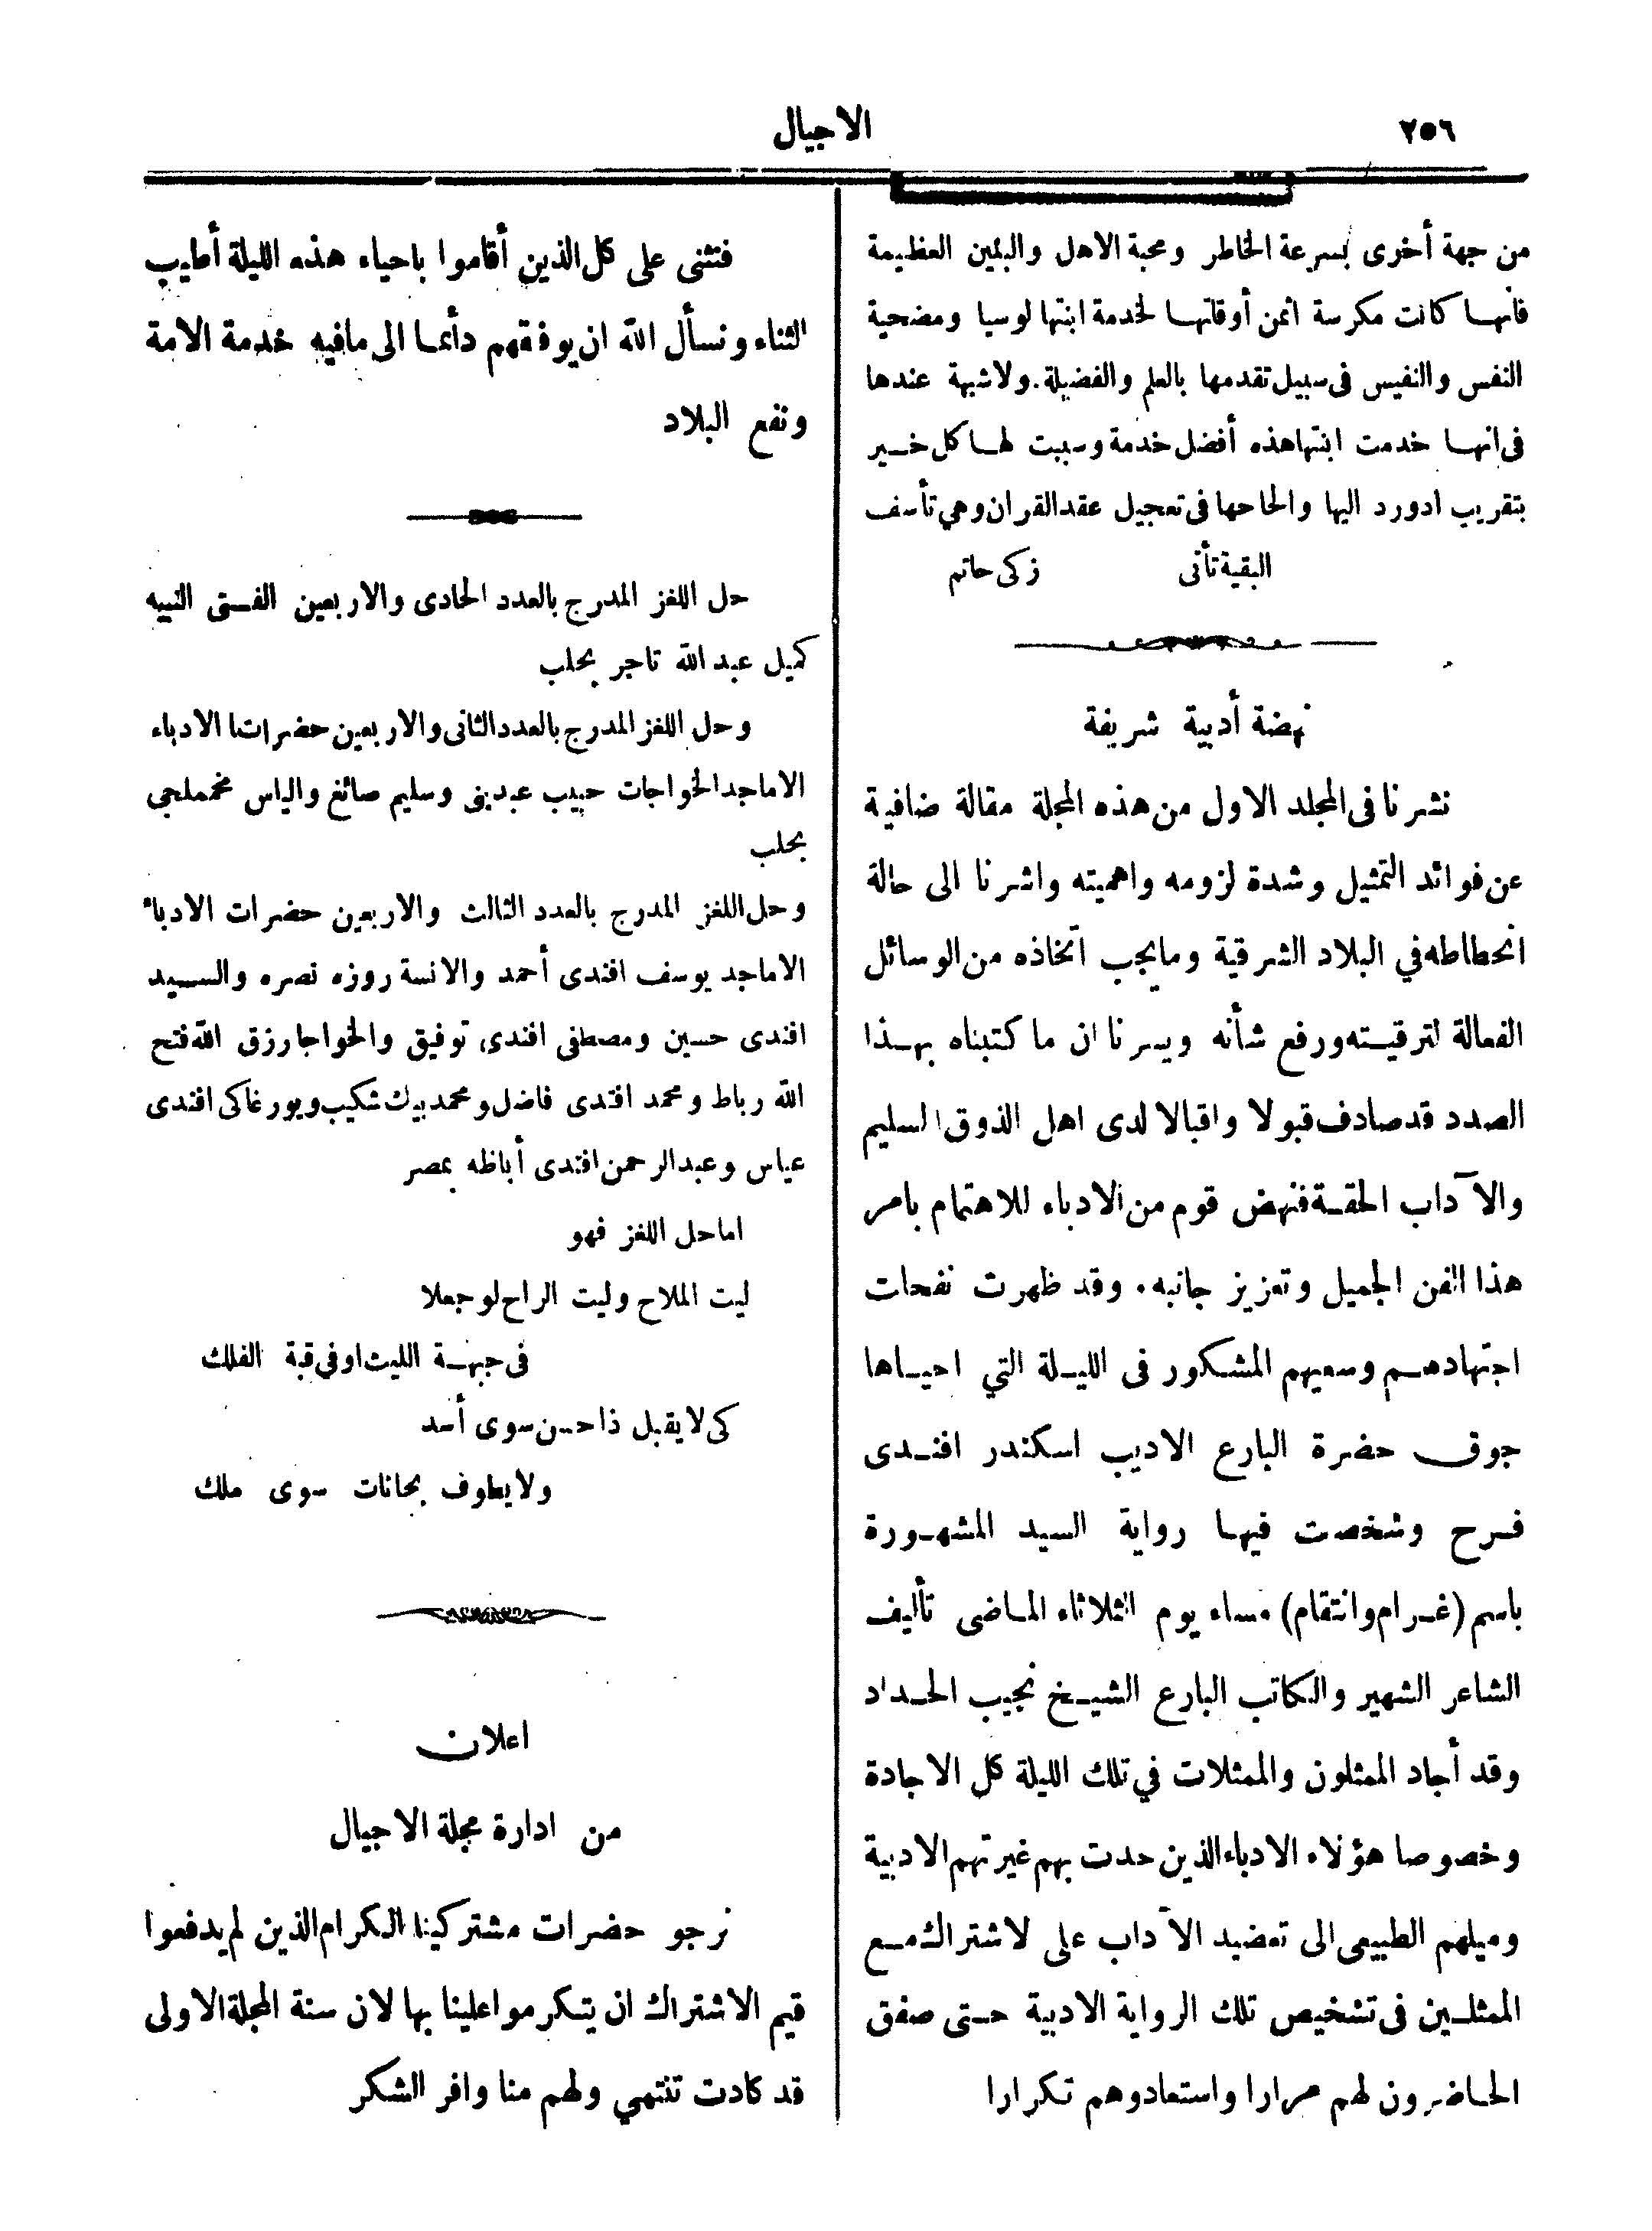 ٢٥٦
الاجيال
من جهة أخرى بسرعة الخاطر ومحبة الاهل والبنين العظيمة
فانهـا كانت مكرسة اثمن أوقاتهـا لخدمة ابنتها لوسيا ومضحية
النفس والنفيس فى سبيل تقدمها بالعلم والفضيلة. ولا شبهة عندها
فى انهـا خدمت ابنتها هذه أفضل خدمة وسببت لهـا كل خـير
بتقريب ادورد اليها والحاحها فى تعجيل عقد القران وهي تأسف
البقية تأتى زكى حاتم
نهضة أدبية شريفة
نشرنا فى المجلد الاول من هذه المجلة مقالة ضافية
عن فوائد التمثيل وشدة لزومه واهميته واشرنا الى حالة
انحطاطه في البلاد الشرقية وما يجب اتخاذه من الوسائل
الفعالة لترقيـته ورفع شأنه ويسرنا ان ما كتبناه بهـذا
الصدد قد صادف قبولا واقبالا لدى اهل الذوق السليم
والآداب الحقـة فنهض قوم من الادباء للاهتمام بامر
هذا الفن الجميل وتعزيز جانبه. وقد ظهرت نفحات
اجتهادهـم وسعيهم المشـكور فى الليـلة التي احيـاها
جوق حضرة البارع الاديب اسكندر افنـدى
فـرح وشخصت فيهـا رواية السيد المشهـورة
باسم (غـرام وانتقام) مساء يوم الثلاثاء المـاضى تأليف
الشاعر الشهير والـكاتب البارع الشيـخ نجيب الحـداد
وقد أجاد الممثلون والممثلات في تلك الليلة كل الاجادة
وخصوصا هؤلاء الادباء الذين حدت بهم غيرتهم الادبية
وميلهم الطبيعى الى تعضيد الآداب على لاشتراك مـع
الممثلـين فى تشخيص تلك الرواية الادبية حـتى صفق
الحـاضرون لهم مرارا واستعادوهم تـكرارا
فنثنى على كل الذين أقاموا باحياء هذه الليلة أطيب
الثناء ونسأل الله ان يوفقهم دائمـا الى ما فيه خدمة الامة
ونفع البلاد
حل اللغز المدرج بالعدد الحادى والاربعين الفـتى النبيه
كميل عبد الله تاجر بحلب
وحل اللغز المدرج بالعدد الثانى والاربعين حضرات الادباء
الاماجد الخواجات حبيب عبدينى وسليم صائغ والياس مخملجى
بحلب
وحل اللغز المدرج بالعدد الثالث والاربعين حضرات الادباء
الاماجد يوسف افندى أحمد والانسة روزه نصره والسـيد
افندى حسين ومصطفى افندى توفيق والخواجا رزق الله فتح
الله رباط ومحمد افندى فاضل ومحمد بيك شكيب ويورغاكى افندى
عياس وعبد الرحمن افندى أباظه بمصر
اما حل اللغز فهو
ليت الملاح وليت الراح لو جعلا
فى جبهـة الليث او في قبة الفلك
كى لا يقبل ذا حسن سوى أسد
ولا يطوف بحانات سوى ملك
اعلان
من ادارة مجلة الاجيال
نرجو حضرات مشتركينا الـكرام الذين لم يدفعوا
قيم الاشتراك ان يتـكرموا علينا بها لان سنة المجلة الاولى
قد كادت تنتهي ولهم منا وافر الشكر